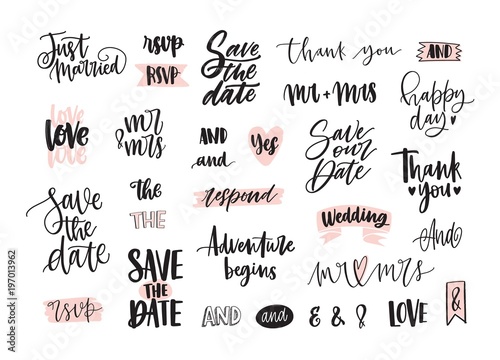 Just
Married
rsvp
RSVP
Save
the
date
thank you
AND
mr + mrs
happy
day
love
love
love
mr
& mrs
AND
and
Yes
Save
our
Date
Thank
you
save
the
date
the
THE
respond
Wedding
And
SAVE
THE
DATE
Adventure
begins
mr mrs
rsvp
AND
and
& & &
LOVE
&
Adobe Stock | #197013962